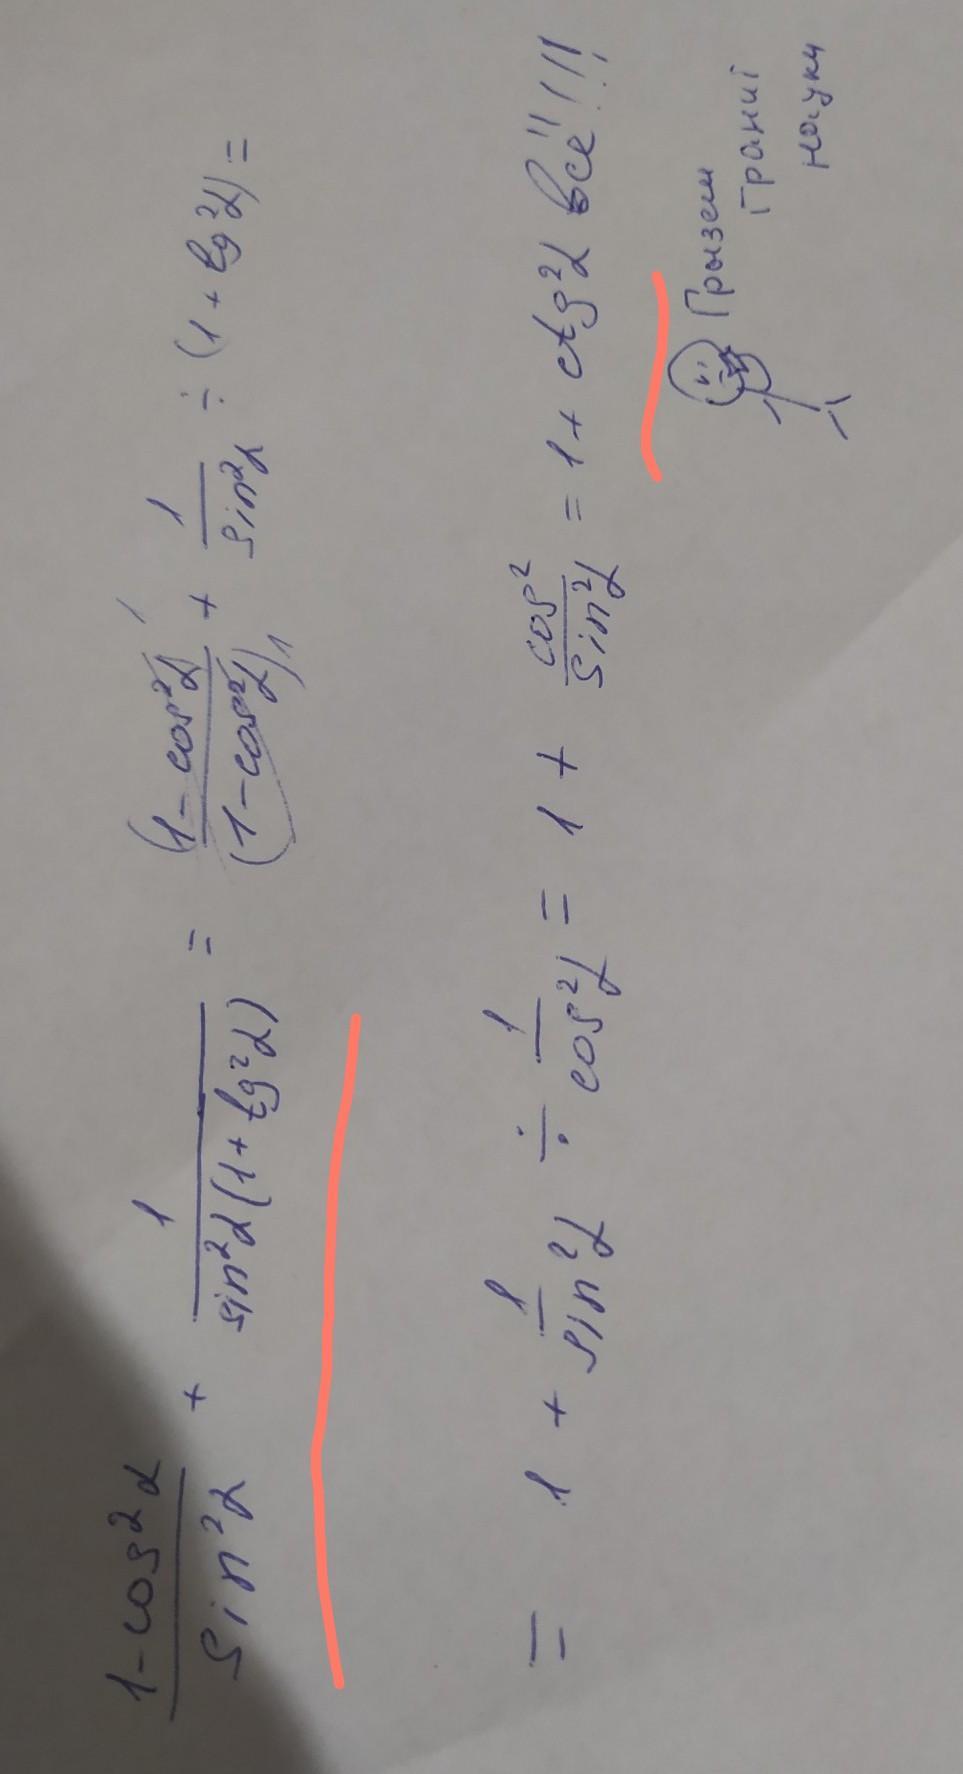 (1-cos²α)/(sin²α) + 1/(sin²α(1+tg²α)) = (1-cos²α)/(1-cos²α) + 1/(sin²α) ÷ (1+tg²α) =
= 1 + 1/(sin²α) ÷ 1/(cos²α) = 1 + cos²/(sin²α) = 1 + ctg²α всё!!!!
Грызем
граниі
науки